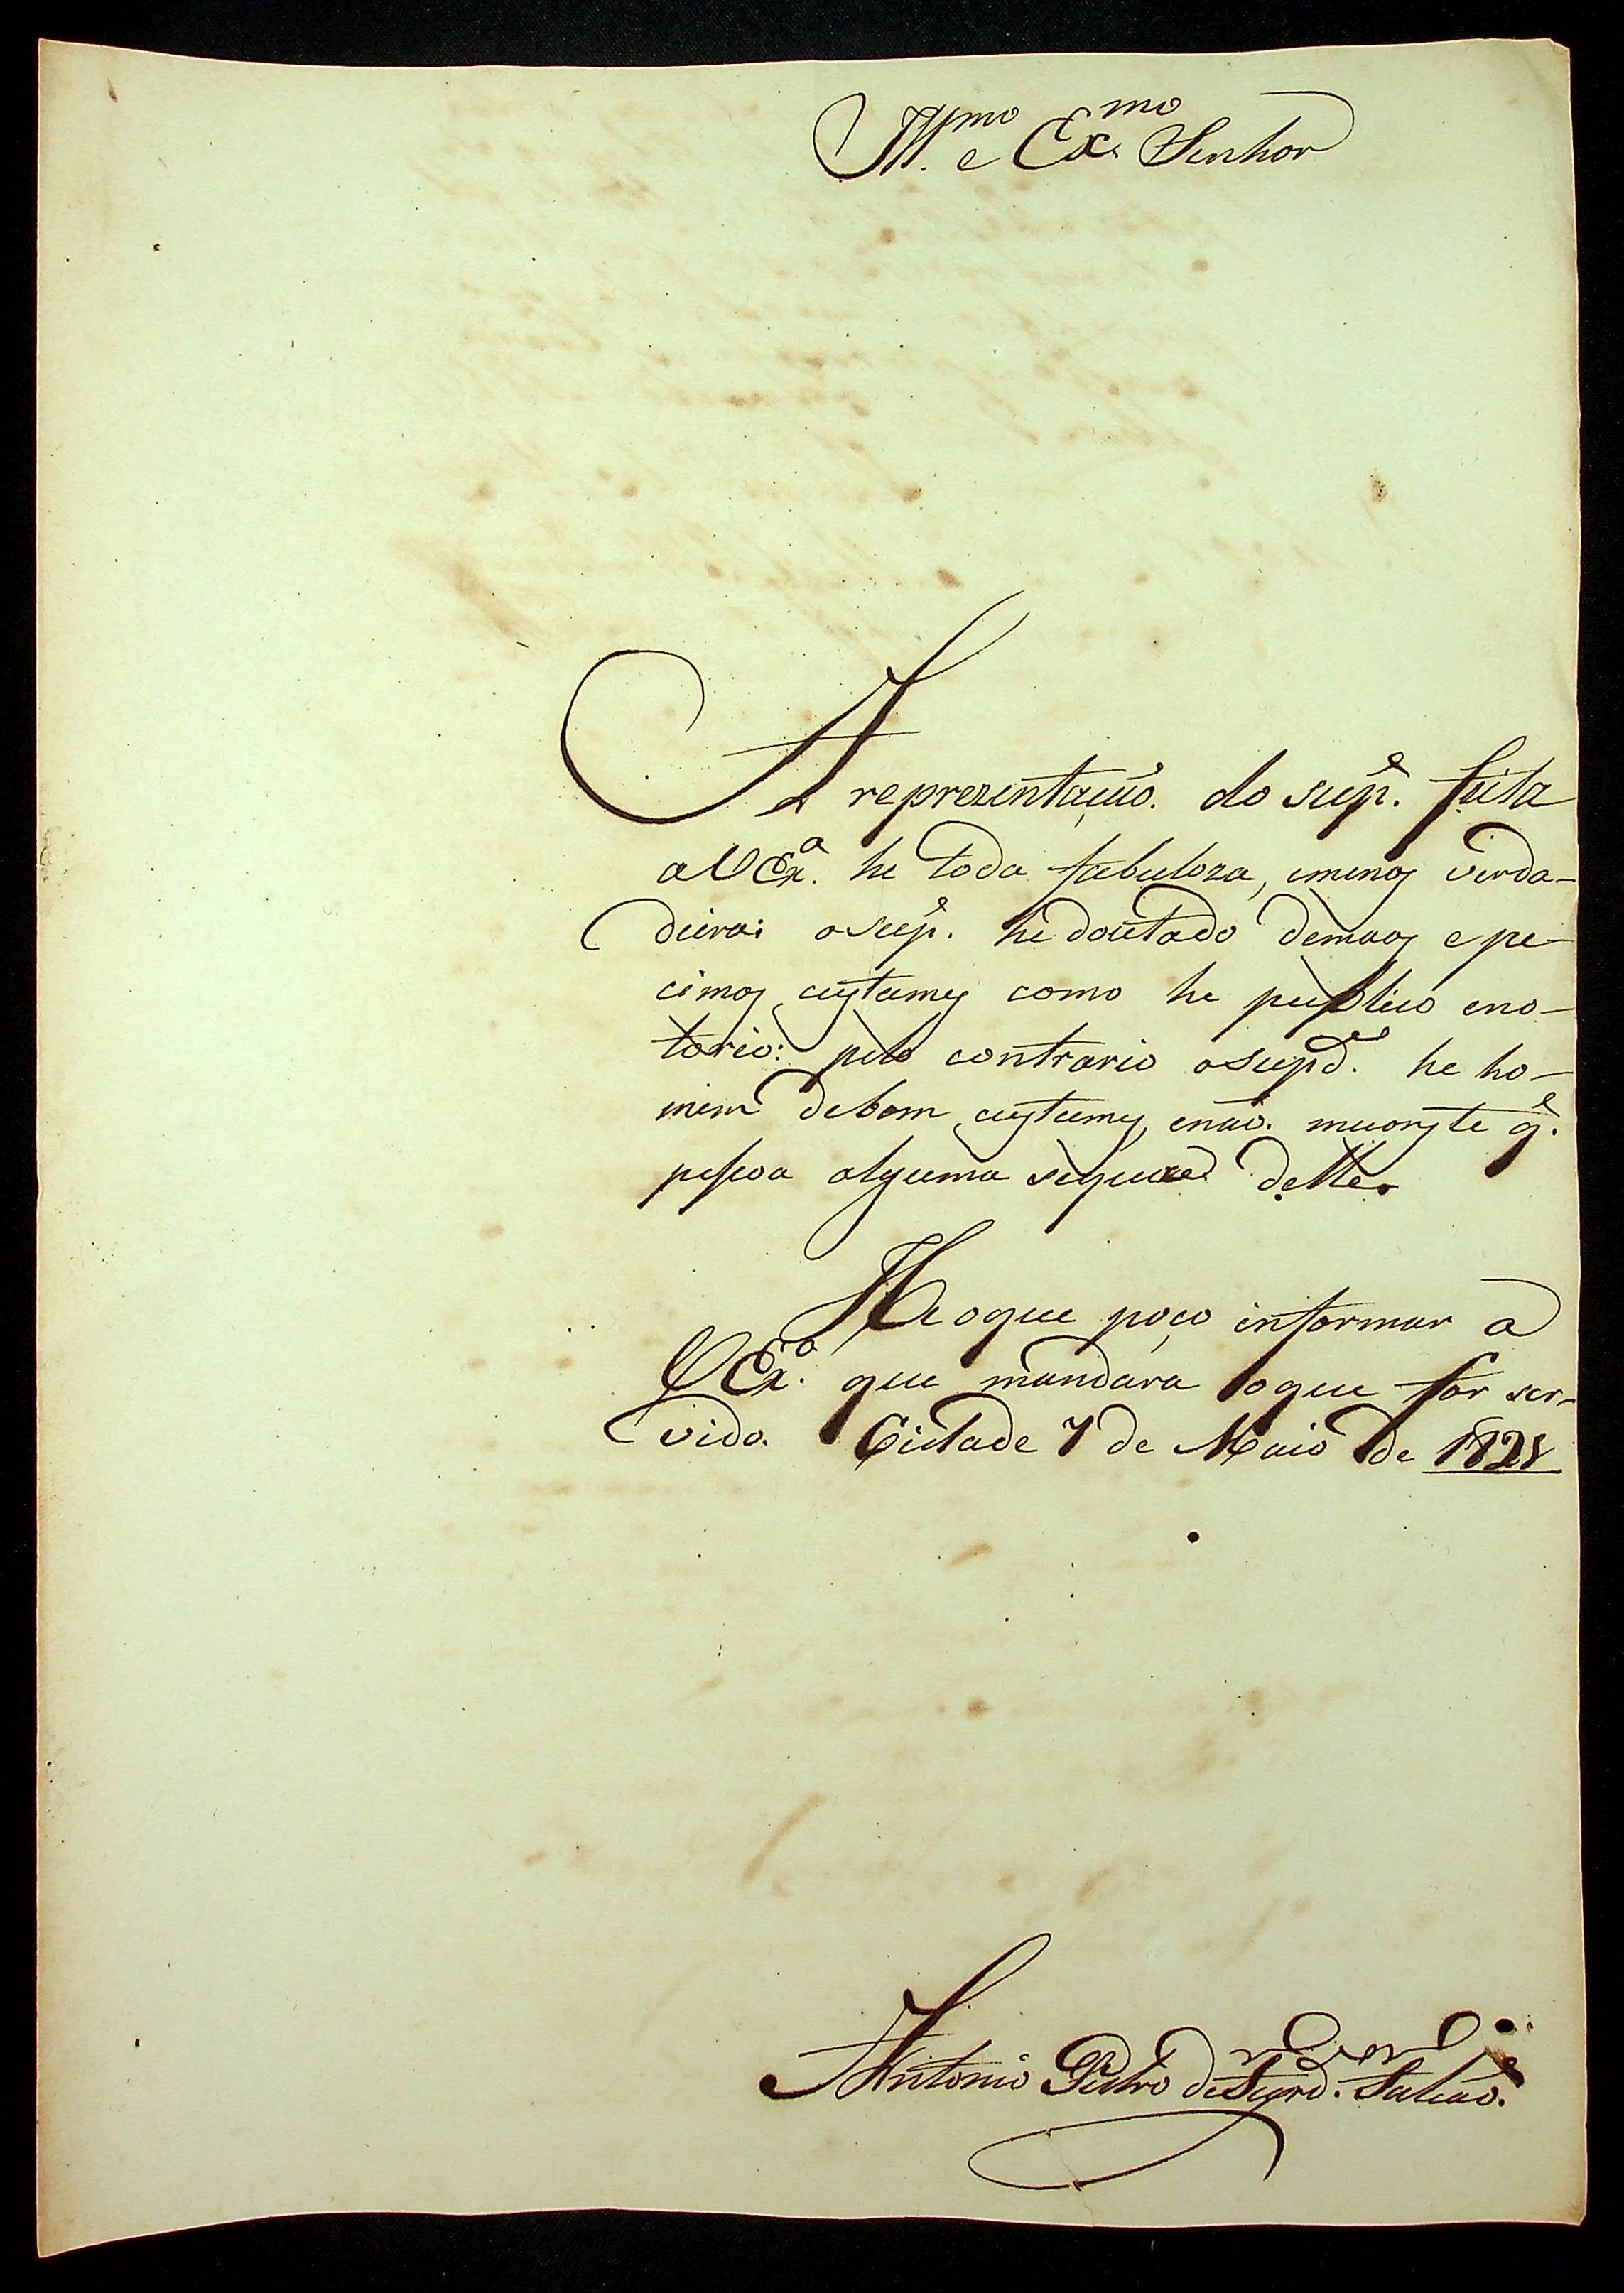 Ill.mo e Ex.mo Senhor
A reprezentação do sup.e feita
a V Ex.a he toda fabuloza, emenos verda-
deira: osup.e he doutado demaos epe-
cimos custumes como he puplico eno-
torio: pelo contrario osupd.o he ho-
mem debom custumes, enão. meconste q.e
pessoa alguma sequexe delle.
He oque poço informar a
V Ex.a que mandara oque for ser-
vido. Cidade 7 de Maio de 1828
Antonio Pedro de Falcão.